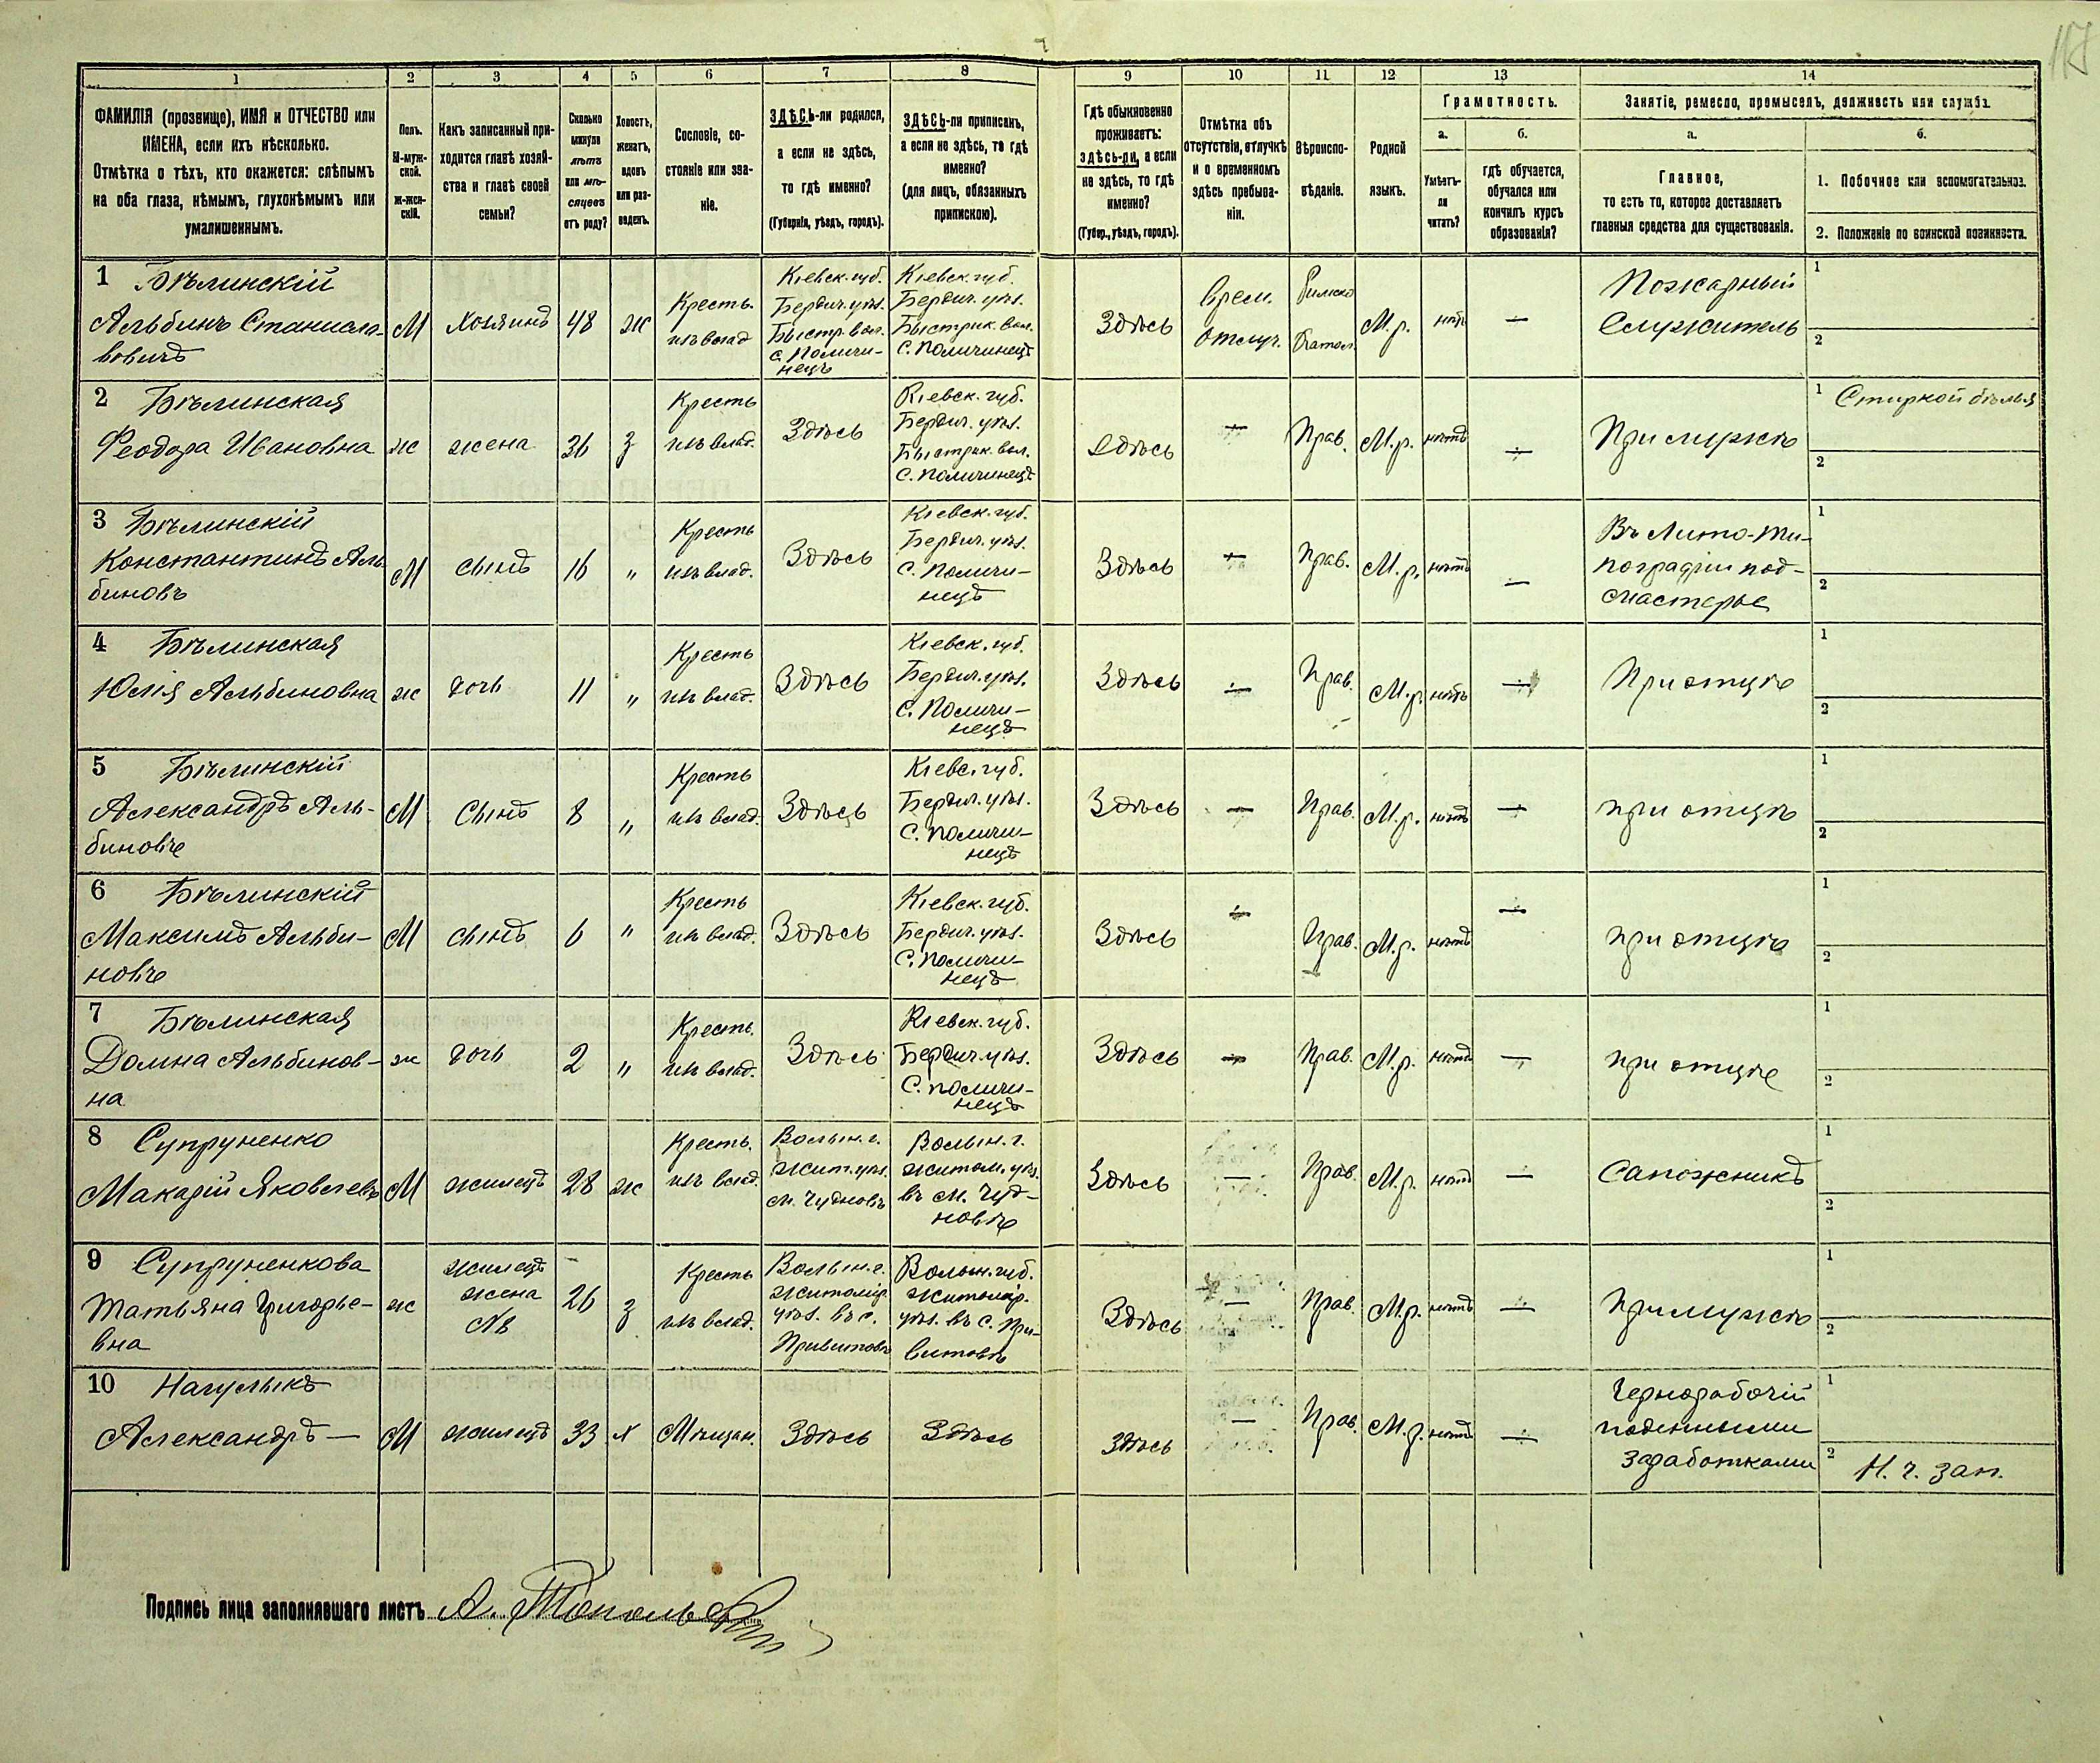 117
1 2 3 4 5 6 7 8 9 10 11 12 13 14
ФАМИЛІЯ (прозвище), ИМЯ и ОТЧЕСТВО или
ИМЕНА, если ихъ нѣсколько.
Отмѣтка о тѣхъ, кто окажется: слѣпымъ
на оба глаза, нѣмымъ, глухонѣмымъ или
умалишеннымъ.
Полъ.
М-муж-
ской.
Ж-жен-
скій.
Какъ записанный при-
ходится главѣ хозяй-
ства и главѣ своей
семьи?
Сколько
минуло
лѣтъ
или мѣ-
сяцевъ
отъ роду?
Холостъ,
женатъ,
вдовъ
или раз-
веденъ.
Сословіе, со-
стояніе или зва-
ніе.
ЗДѢСЬ-ли родился,
а если не здѣсь,
то гдѣ именно?
(Губернія, уѣздъ, городъ).
ЗДѢСЬ-ли приписанъ,
а если не здѣсь, то гдѣ
именно?
(для лицъ, обязанныхъ
припискою).
Гдѣ обыкновенно
проживаетъ:
здѣсь-ли, а если
не здѣсь, то гдѣ
именно?
(Губер., уѣздъ, городъ).
Отмѣтка объ
отсутствіи, отлучкѣ
и о временномъ
здѣсь пребыва-
ніи.
Вѣроиспо-
вѣданіе.
Родной
языкъ.
Грамотность.
а.
Умѣетъ-
ли
читать?
б.
гдѣ обучается,
обучался или
кончилъ курсъ
образованія?
Занятіе, ремесло, промыселъ, должность или служба.
а.
Главное,
то есть то, которое доставляетъ
главныя средства для существованія.
б.
1. Побочное или вспомогательное.
2. Положеніе по воинской повинности.
1 Бѣлинскій
Альбинъ Станисла-
вовичъ
М
Хозяинъ
48
ж
Кресть.
изъ влад
Кіевск. губ.
Бердич. уѣз.
Быстр. вол.
с. Поличи-
нецъ
Кіевск. губ.
Бердич. уѣз.
Быстрик. вол.
С. Поличинецъ
Здѣсь
Врем.
отлуч.
Римско
Катол.
М. р.
нѣтъ
—
Пожарный
Служитель
1
2
2 Бѣлинская
Феодора Ивановна
ж
жена
36
з
Кресть
изъ влад.
Здѣсь
Кіевск. губ.
Бердич. уѣз.
Быстрик. вол.
С. Поличинецъ
Здѣсь
—
Прав.
М. р.
нѣтъ
—
При мужѣ
1 Стиркой бѣлья
2
3 Бѣлинскій
Константинъ Аль
биновъ
М
сынъ
16
"
Кресть
изъ влад.
Здѣсь
Кіевск. губ.
Бердич. уѣз.
С. Поличи-
нецъ
Здѣсь
—
Прав.
М. р.
нѣтъ
—
Въ Лито-ти-
пографіи под-
мастерье
1
2
4 Бѣлинская
Юлія Альбиновна
ж
дочь
11
"
Кресть
изъ влад.
Здѣсь
Кіевск. губ.
Бердич. уѣз.
С. Поличи-
нецъ
Здѣсь
—
Прав.
М. р.
нѣтъ
—
При отцѣ
1
2
5 Бѣлинскій
Александръ Аль-
биновъ
М
Сынъ
8
"
Кресть
изъ влад.
Здѣсь
Кіевс. губ.
Бердич. уѣз.
С. Поличи-
нецъ
Здѣсь
—
Прав.
М. р.
нѣтъ
—
при отцѣ
1
2
6 Бѣлинскій
Максимъ Альби-
новъ
М
сынъ
6
"
Кресть
изъ влад.
Здѣсь
Кіевск. губ.
Бердич. уѣз.
С. Поличи-
нецъ
Здѣсь
—
Прав.
М. р.
нѣтъ
—
при отцѣ
1
2
7 Бѣлинская
Домна Альбинов-
на
ж
дочь
2
"
Кресть.
изъ влад.
Здѣсь
Кіевск. губ.
Бердич. уѣз.
С. Поличи-
нецъ
Здѣсь
—
Прав.
М. р.
нѣтъ
—
при отцѣ
1
2
8 Супруненко
Макарій Яковлевъ
М
жилецъ
28
ж
Кресть.
изъ влад.
Волын. г.
Жит. уѣз.
м. Чудновъ
Волын. г.
Житом. уѣз.
въ м. Чуд-
новѣ
Здѣсь
—
Прав.
М. р.
нѣтъ
—
Сапожникъ
1
2
9 Супруненкова
Татьяна Григорье-
вна
ж
жилецъ
жена
№8
26
з
Кресть
изъ влад.
Волын. г.
Житомір.
уѣз. въ с.
Привитовѣ
Волын. губ.
Житомір.
уѣз. въ с. При-
витовѣ
Здѣсь
—
Прав.
М. р.
нѣтъ
—
При мужѣ
1
2
10 Нагулыкъ
Александръ —
М
жилецъ
33
х
Мѣщан.
Здѣсь
Здѣсь
Здѣсь
—
Прав.
М. р.
нѣтъ
—
Чернорабочій
поденными
заработками
1
2 Н. ч. зап.
Подпись лица заполнявшаго листъ А.